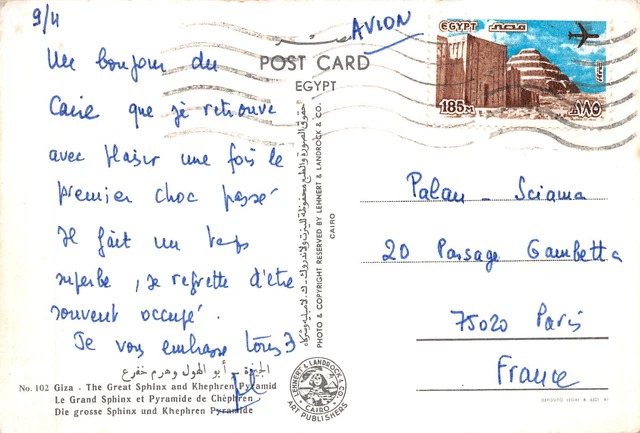 9/4
AVION
Un bonjour du
Caire que je retrouve
avec plaisir une fois le
premier choc passé
Il fait un temps
superbe, je regrette d'être
souvent occupé.
Je vous embrasse tous 3
POST CARD
EGYPT
حقوق الصورة والطبع محفوظة للينرت ولاندروك
PHOTO & COPYRIGHT RESERVED BY LEHNERT & LANDROCK & CO.
CAIRO
EGYPT مصر
185M ١٨٥م
Palau - Sciama
20 Passage Gambetta
75020 Paris
France
الجيزة - أبو الهول وهرم خفرع
No. 102 Giza - The Great Sphinx and Khephren Pyramid
Le Grand Sphinx et Pyramide de Chéphren
Die grosse Sphinx und Khephren Pyramide
LEHNERT & LANDROCK & CO.
CAIRO
ART PUBLISHERS